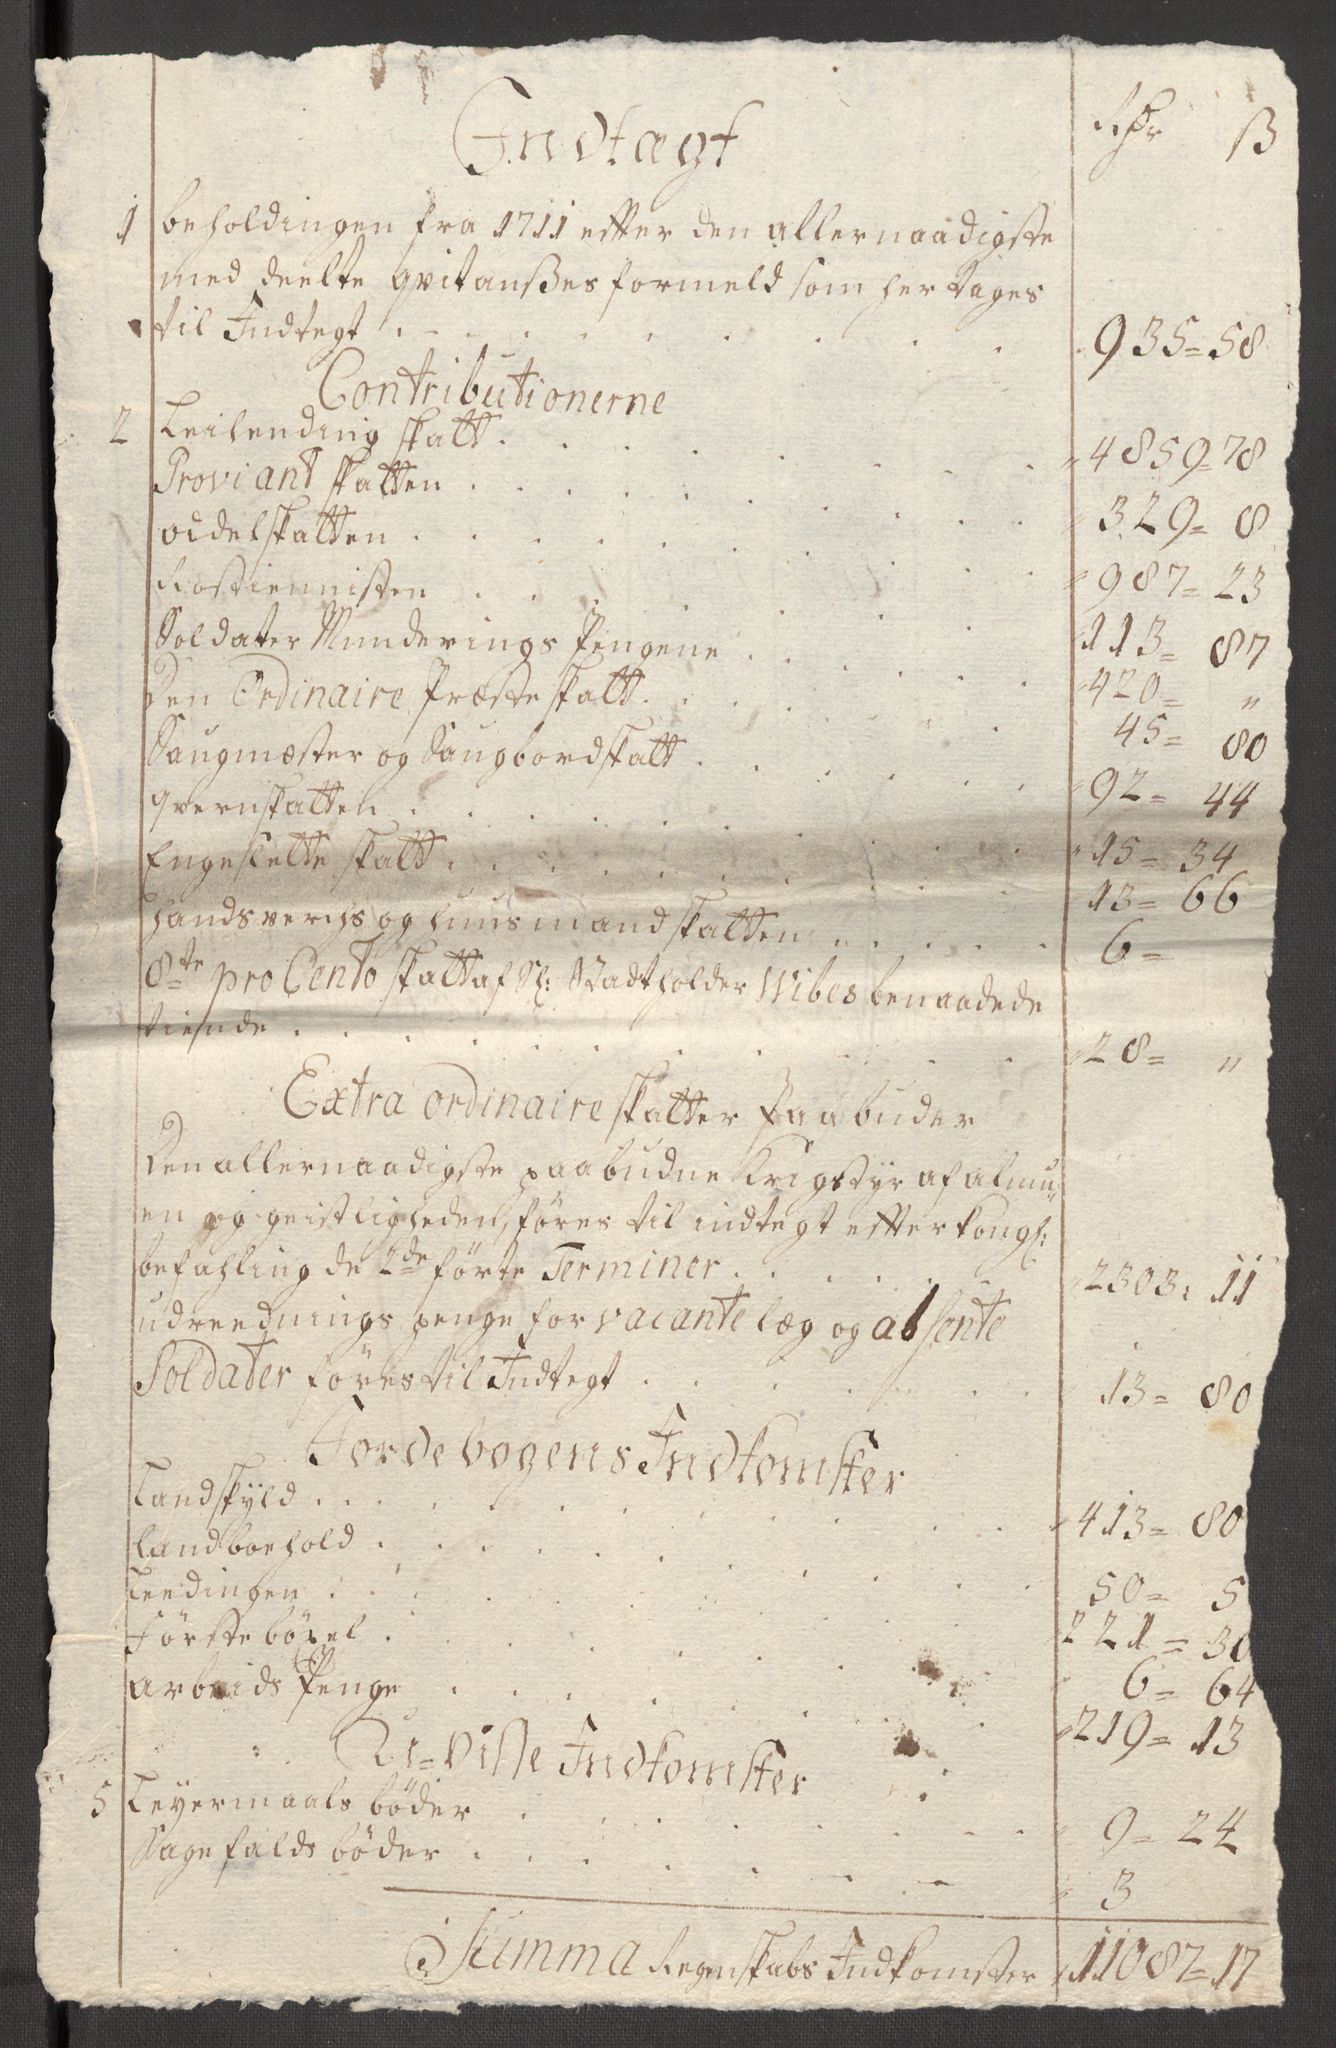 Indtægt Rdr ß
1 beholdingen fra 1711 efter den allernaadigste
med deelte qvitanßes formeld som her tages
til Indtegt . . . 935 = 58
Contributionerne
2 Leilending skatt . . . 4859 = 78
Proviant skatten . . . 329 = 8
odelskatten . . . 987 = 23
Rostiennisten . . . 113 = 87
Soldater Munderings Pengene . . . 420 = "
Den Ordinaire Præste skatt . . . 45 = 80
Saugmæster og Saugbordskatt . . . 92 = 44
qvernskatten . . . 15 = 34
Engeslette skatt . . . 13 = 66
handsverchs og huusmandskatten . . . 6 =
8te pro Cento skatt af Sl: Stadtholder Wibes benaadede
tiende . . . 28 = "
Extra ordinaire skatter Paabuder
Den allernaadigste paabudne Krigstyr af almu-
en og geistligheden, føres til indtegt efter kongl:
befahling de 2de førte Terminer . . . 2303: 11
udreednings penge for vacante læg og absente
Soldater føres til Indtegt . . . 13 = 80
Jordebogens Indkomster
Landskyld . . . 413 = 80
landboehold . . . 50 = 5
Leedingen . . . 221 = 30
Førstebøxel . . . 6 = 64
Arbeids Penge . . . 219 = 13
U=visse Indkomster
5 Leyermaals bøder . . . 9 = 24
Sagefalds bøder . . . 3
Summa Regenskabs Indkomster 11087 = 17